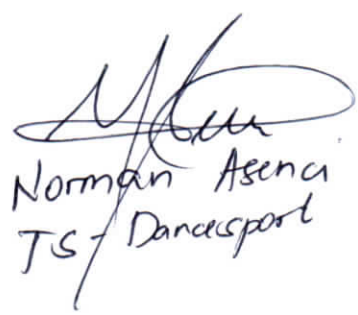 Norman Asenci
TS - Dancesport